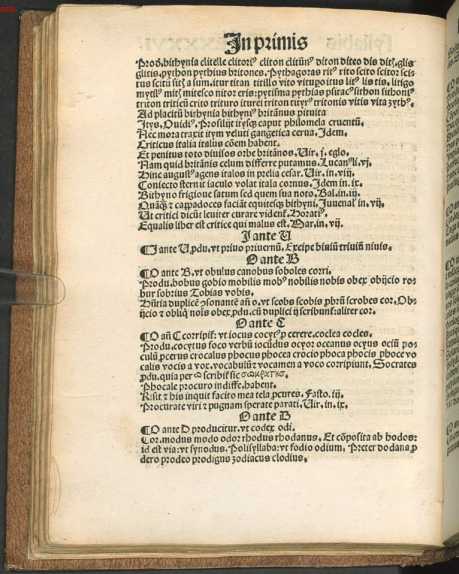 In primis
bithynia clitelle clitoris cliton clitũnꝰ viton diteo dis ditis glis
glitis. python pythius britones. Pythagoras ritꝰ rito scito scitor sci
tus scitũ sit a sum. itur titan titillo vito vitupo itus litꝰ lis tis. litigo
mitesco nitor eris: pytisma pythias psitacꝰ sithon sithonij
triton triticũ crito trituro iturei tritan tityrꝰ tritonis vitis vita zythꝰ.
Ad placitũ bithynia bithynꝰ britãnus pituita
Itys. Ouidiꝰ. Prosilijt itysqꝫ caput philomela cruentũ.
Nec mora traxit itym veluti gangetica cerua. Idem.
Criticus italia italus cõem habent.
Et penitus toto diuisos orbe britãnos. Uir. j. eglo.
Nam quid britãnis celum differre putamus. Lucanꝰ li. vj.
Hinc augustꝰ agens italos in prelia cesar. Uir. in. viij
Coniecto sternit iaculo volat itala cornus. Idem in. ix.
Bithyno frigioue satum sed quem sua noro. Bal. in. iij
Quãqꝫ et cappadoces faciãt equitesqꝫ bithyni. Juuenal in. vij
Ut critici dicũt leuiter curare videnꝉ. Horatiꝰ.
Equalis liber est critice qui malus est. Mar. in. vij.
I ante U
¶I ante U ꝓdu. vt priuo priuernũ. Excipe biuiũ triuiũ niuis.
O ante B
¶O ante B. vt obulus canobus soboles corri.
Produ. bobus gobio mobilis mobꝰ nobilis nobis obex obijcio ro
bur sobrius Tobias vobis.
duplicẽ ↄsonantẽ añ o. vt scobs scobis scrobes cor. Ob
ijcio et obliqꝰ nois obex ꝓdu. cũ duplici ij scribunꝉ: aliter cor.
O ante C
¶O añ C corripiꝉ: vt iocus cocytꝰ cerere. cocles cocles.
Produ. cocytus foco verbũ iocũdus ocyor oceanus ocyus ociũ po
culũ crocalus phocus phocea crocio phoca phocis phoce vo
calis vocis a vox. vocabulũ vocamen a voco corripiunt. Socrates
ꝓdu. quia per ω scribiꝉ sic
Phocale procuro indiffe. habent.
Risit et his inquit facito mea tela Fasto. ij.
Procurate viri et pugnam sperate parati. Uir. in. ix.
O ante D
¶O ante D producitur. vt codex odi.
Cor. modus modo odor rhodus rhodanus. Et cõposita ab hodos:
id est via: vt synodus. Polisyllaba: vt fodio odium. Preter dodana ꝓ
dero prodeo prodigus zodiacus clodius.